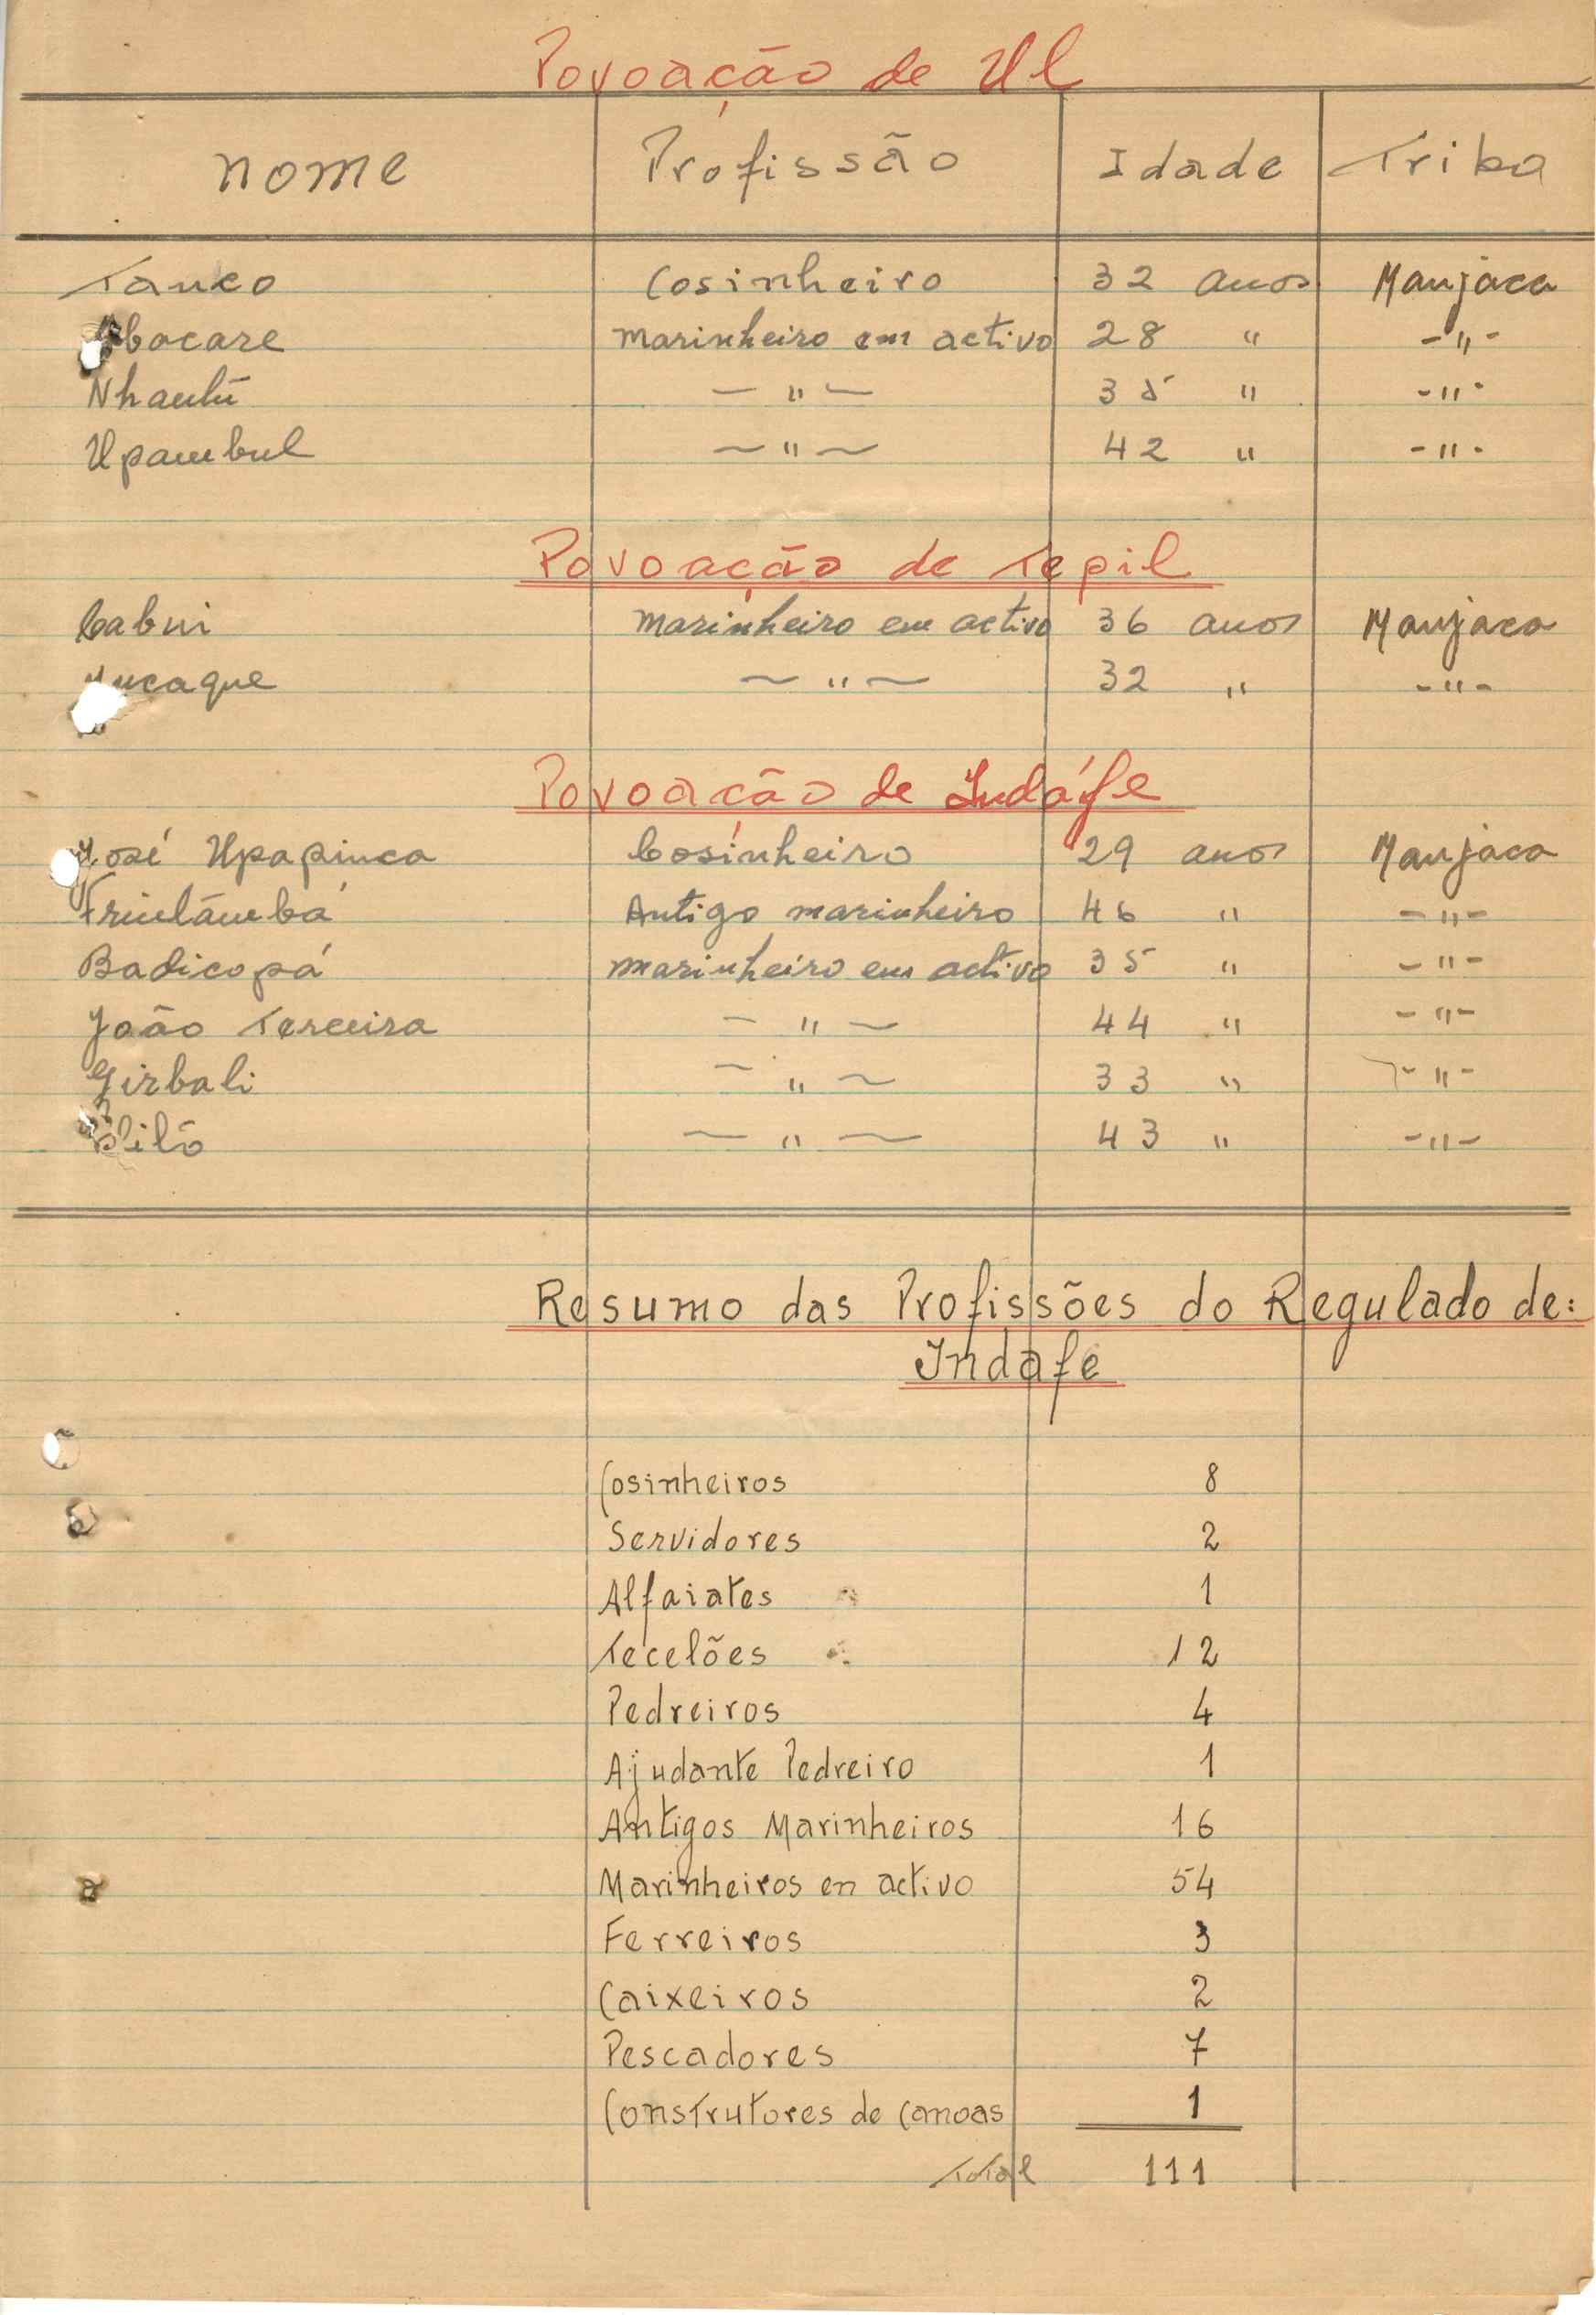 Povoação de Ul
Nome Profissão Idade Tribo
Tanco Cosinheiro 32 anos Manjaca
Abacare Marinheiro em activo 28 " -"-
Nhantú - " - 35 " -"-
Upambul - " - 42 " -"-
Povoação de Tepil
Cabui Marinheiro em activo 36 anos Manjaca
- " - 32 " -"-
Povoação de Indáfe
José Upapinca Cosinheiro 29 anos Manjaca
Antigo marinheiro 46 " -"-
Badicopá Marinheiro em activo 35 " -"-
João Terceira - " - 44 " -"-
Girbali - " - 33 " -"-
- " - 43 " -"-
Resumo das Profissões do Regulado de:
Indafe
Cosinheiros 8
Servidores 2
Alfaiates 1
Tecelões 12
Pedreiros 4
Ajudante Pedreiro 1
Antigos Marinheiros 16
Marinheiros en activo 54
Ferreiros 3
Caixeiros 2
Pescadores 7
Construtores de Canoas 1
Total 111